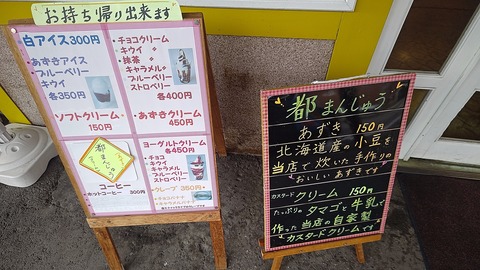 お持ち帰り出来ます
白アイス300円
・あずきアイス
・ブルーベリー
・キウイ
各350円
ソフトクリーム
150円
都まんじゅう
コーヒー
ホットコーヒー 300円
・チョコクリーム
・キウイ
・抹茶
・キャラメル
・ブルーベリー
ストロベリー
各400円
・あずきクリーム
450円
ヨーグルトクリーム
各450円
・チョコ
・キウイ
・キャラメル
・ブルーベリー
・ストロベリー
・クレープ 350円
都まんじゅう
あずき 150円
北海道産の小豆を
当店で炊いた手作りの
おいしいあずきです
カスタードクリーム 150円
たっぷりのタマゴと牛乳で
作った当店の自家製
カスタードクリームです